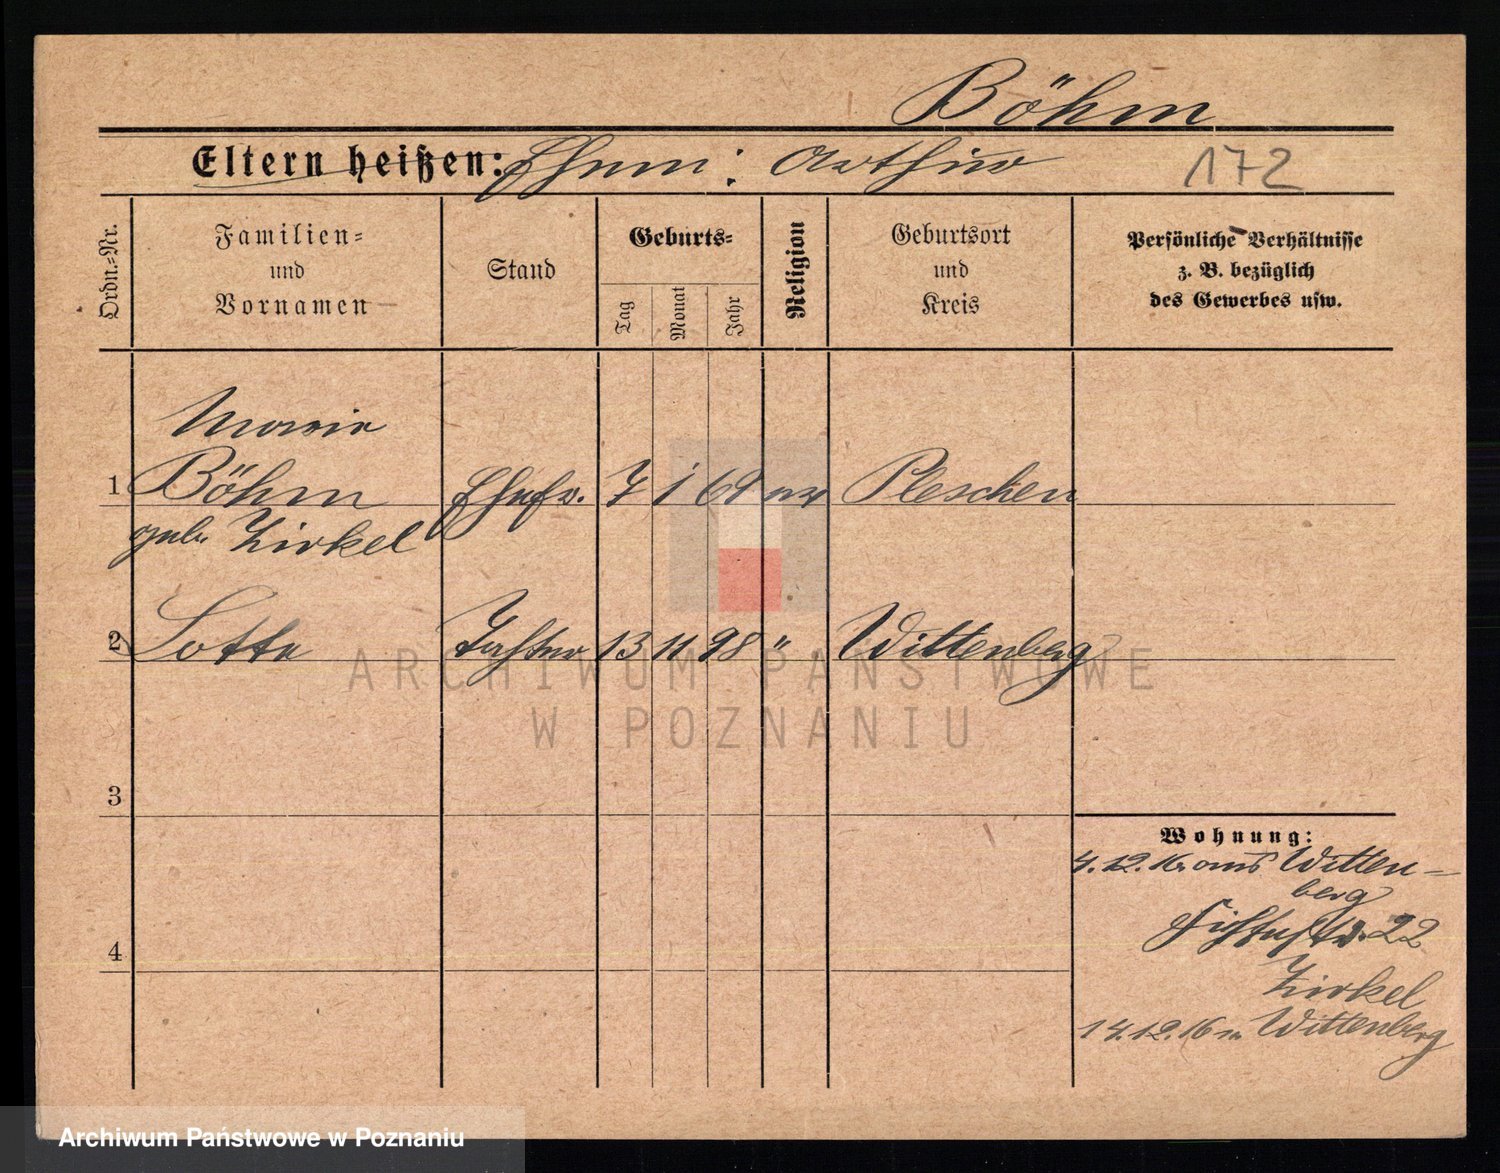 Böhm
Eltern heißen: Ehem: Arthur 172
Ordn.-Nr.
Familien-
und
Vornamen
Stand
Geburts-
Tag
Monat
Jahr
Religion
Geburtsort
und
Kreis
Persönliche Verhältnisse
z. B. bezüglich
des Gewerbes usw.
Marie
1 Böhm Ehefr. 7 1 69 Pleschen
geb. Zirkel
2 Lotte Tochter 13 11 98 " Wittenberg
3
4
Wohnung:
4.12.16 aus Witten-
berg
Fichtestr. 22
Zirkel
14.12.16 n. Wittenberg
ARCHIWUM PAŃSTWOWE
W POZNANIU
Archiwum Państwowe w Poznaniu